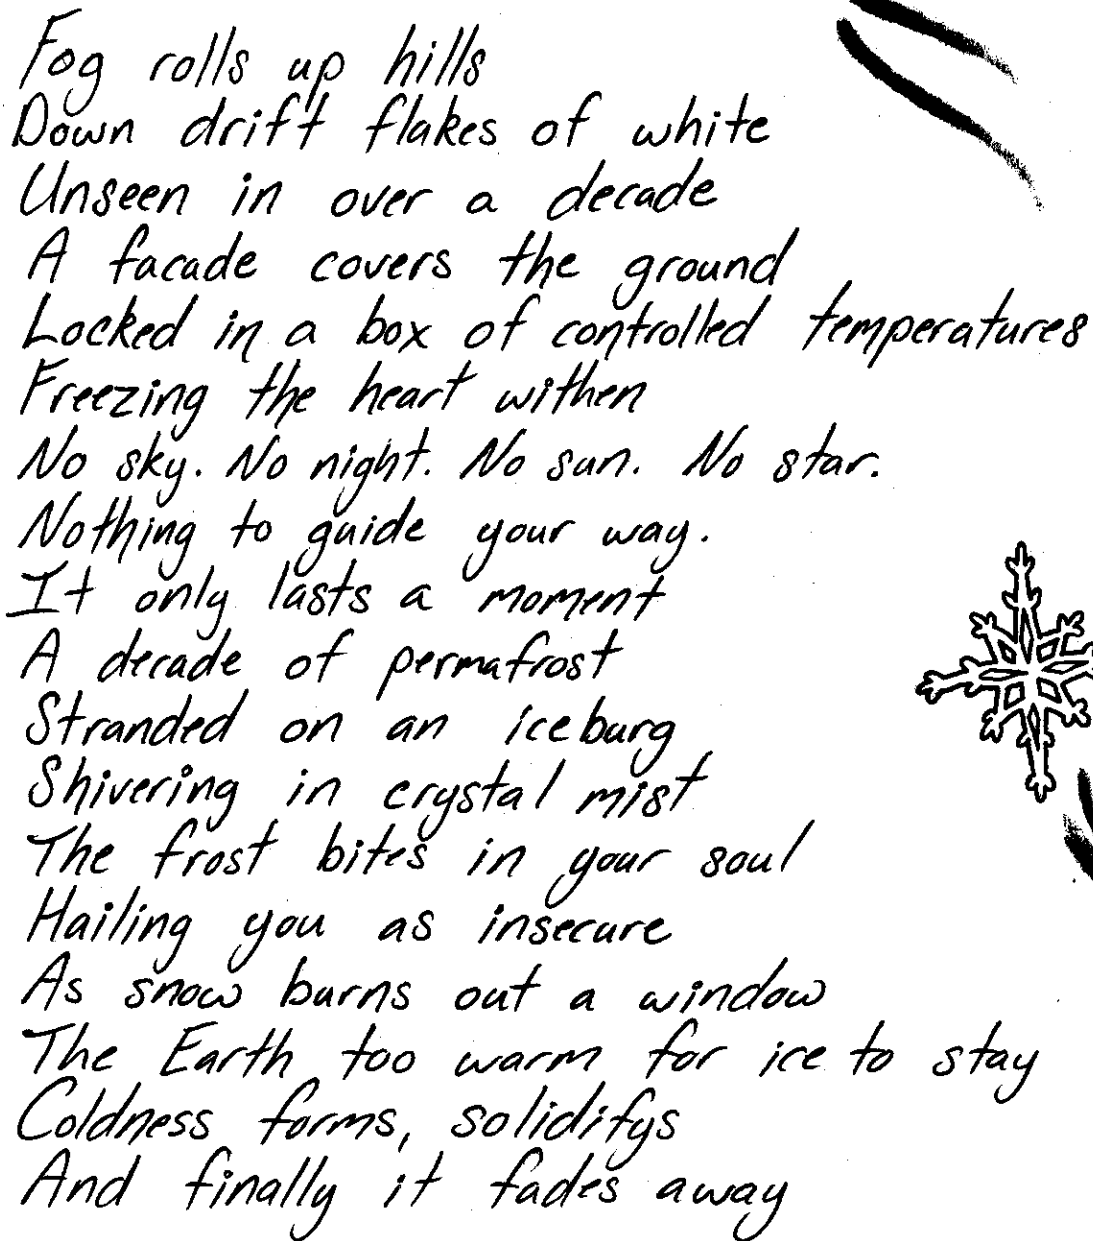 Fog rolls up hills
Down drift flakes of white
Unseen in over a decade
A facade covers the ground
Locked in a box of controlled temperatures
Freezing the heart withen
No sky. No night. No sun. No star.
Nothing to guide your way.
It only lasts a moment
A decade of permafrost
Stranded on an iceburg
Shivering in crystal mist
The frost bites in your soul
Hailing you as insecure
As snow burns out a window
The Earth too warm for ice to stay
Coldness forms, solidifys
And finally it fades away